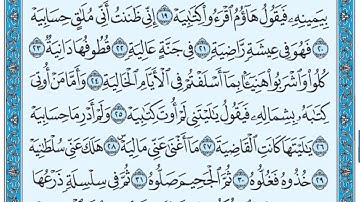 بِيَمِينِهِۦ فَيَقُولُ هَآؤُمُ ٱقْرَءُوا۟ كِتَٰبِيَهْ ١٩ إِنِّى ظَنَنتُ أَنِّى مُلَٰقٍ حِسَابِيَهْ
٢٠ فَهُوَ فِى عِيشَةٍ رَّاضِيَةٍ ٢١ فِى جَنَّةٍ عَالِيَةٍ ٢٢ قُطُوفُهَا دَانِيَةٌ ٢٣
كُلُوا۟ وَٱشْرَبُوا۟ هَنِيٓـًٔۢا بِمَآ أَسْلَفْتُمْ فِى ٱلْأَيَّامِ ٱلْخَالِيَةِ ٢٤ وَأَمَّا مَنْ أُوتِىَ
كِتَٰبَهُۥ بِشِمَالِهِۦ فَيَقُولُ يَٰلَيْتَنِى لَمْ أُوتَ كِتَٰبِيَهْ ٢٥ وَلَمْ أَدْرِ مَا حِسَابِيَهْ
٢٦ يَٰلَيْتَهَا كَانَتِ ٱلْقَاضِيَةَ ٢٧ مَآ أَغْنَىٰ عَنِّى مَالِيَهْ ٢٨ هَلَكَ عَنِّى سُلْطَٰنِيَهْ
٢٩ خُذُوهُ فَغُلُّوهُ ٣٠ ثُمَّ ٱلْجَحِيمَ صَلُّوهُ ٣١ ثُمَّ فِى سِلْسِلَةٍ ذَرْعُهَا